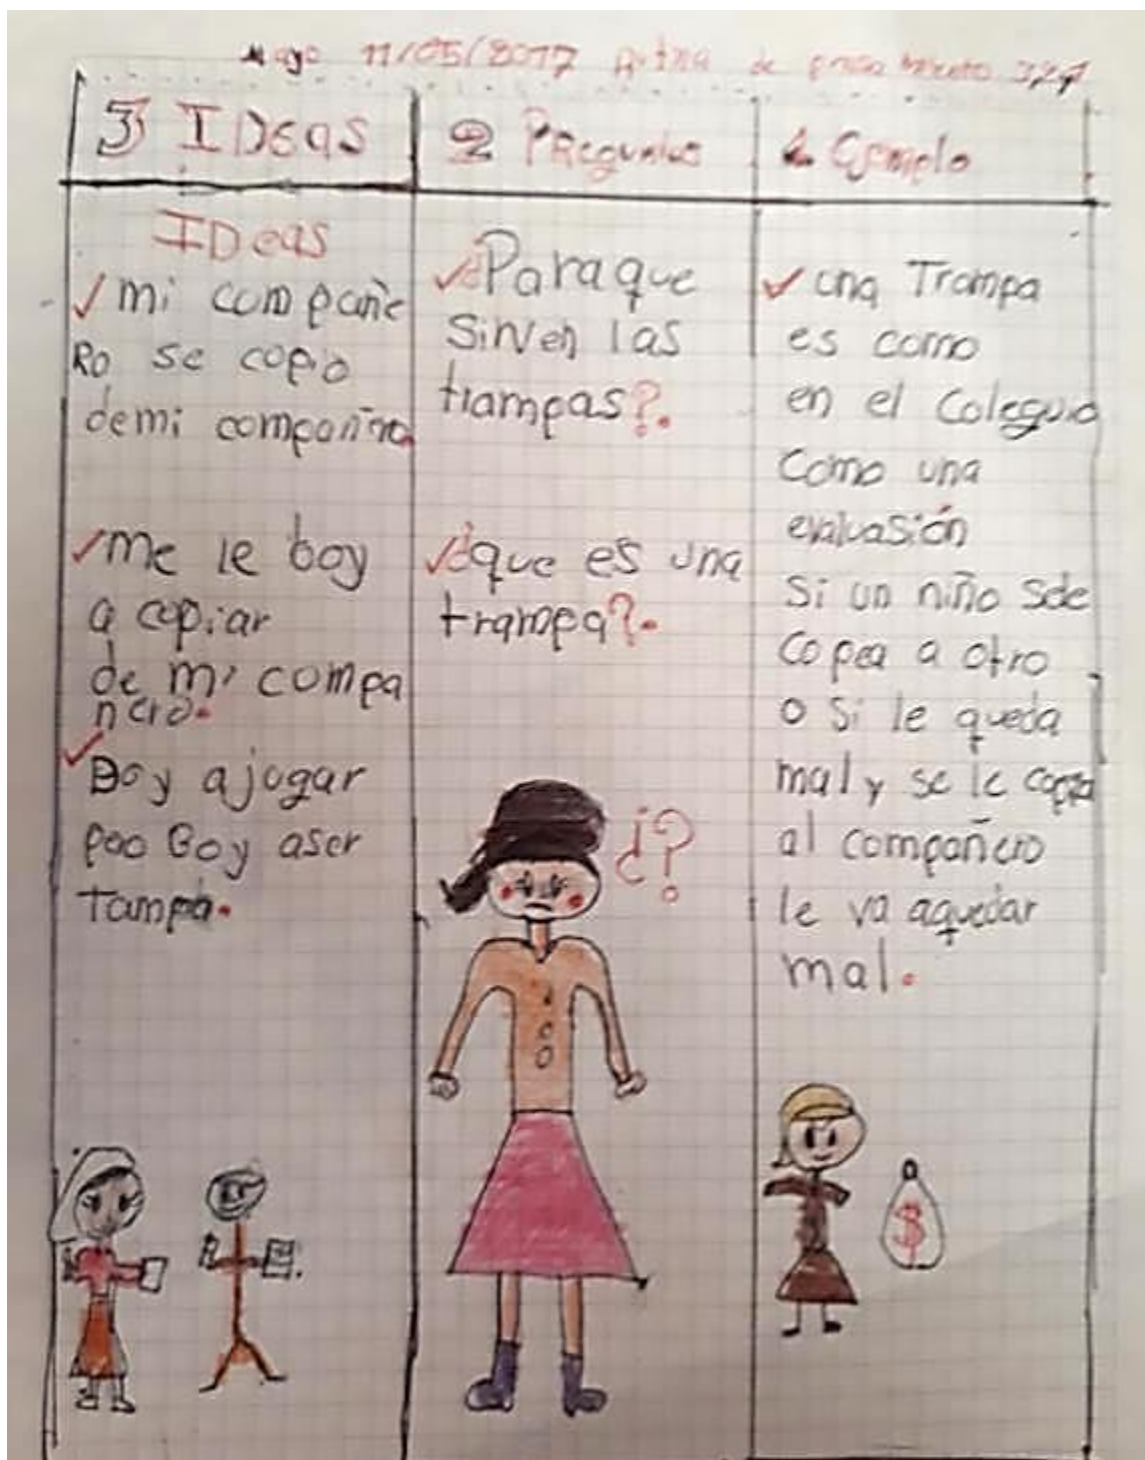 Mayo 11/05/2017 Rutina de pensamiento 3,2,1
3 IDeas
2 PReguntas
1 Ejemplo
IDeas
✓ mi compañe
Ro se copio
demi compañra.
✓ me le boy
a copiar
de mi compa
nero.
✓ Boy ajugar
poo Boy aser
Tampa.
✓ ¿Para que
sirven las
trampas?.
✓ ¿que es una
trampa?.
¿?
✓ una Trampa
es como
en el Coleguio
Como una
evaluasión
Si un niño sele
copea a otro
o si le queda
mal y se le copea
al compañero
le va aquedar
mal.
$